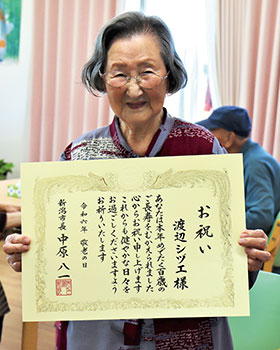 お祝い
渡辺シヅエ様
あなたは本年めでたく百歳の
ご長寿をむかえられました
心からお祝い申し上げます
これからも健やかな日々を
お過ごしくださいますよう
お祈りいたします
令和六年 敬老の日
新潟市長 中原八一